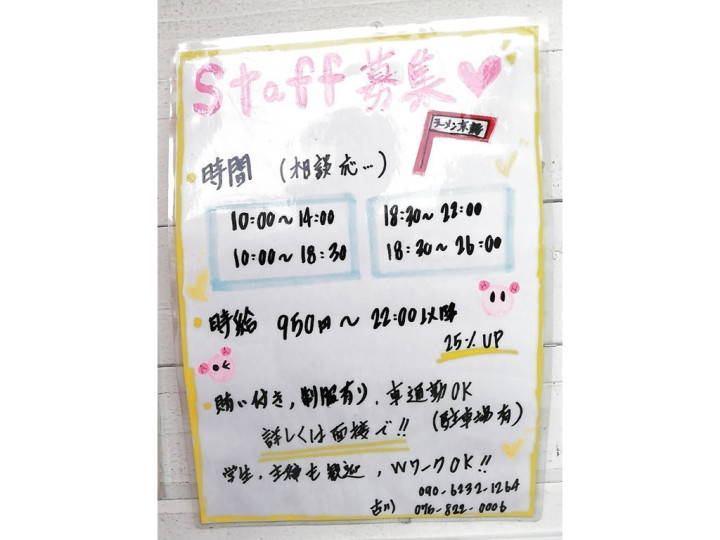 Staff募集
ラーメン京舞
時間 (相談応…)
10:00~14:00
10:00~18:30
18:30~22:00
18:30~26:00
時給 950円~ 22:00以降
25% UP
賄い付き,制服有り、車通勤OK
(駐車場有)
詳しくは面接で!!
学生、主婦も歓迎、WワークOK!!
090-6232-1264
古川 076-822-0006